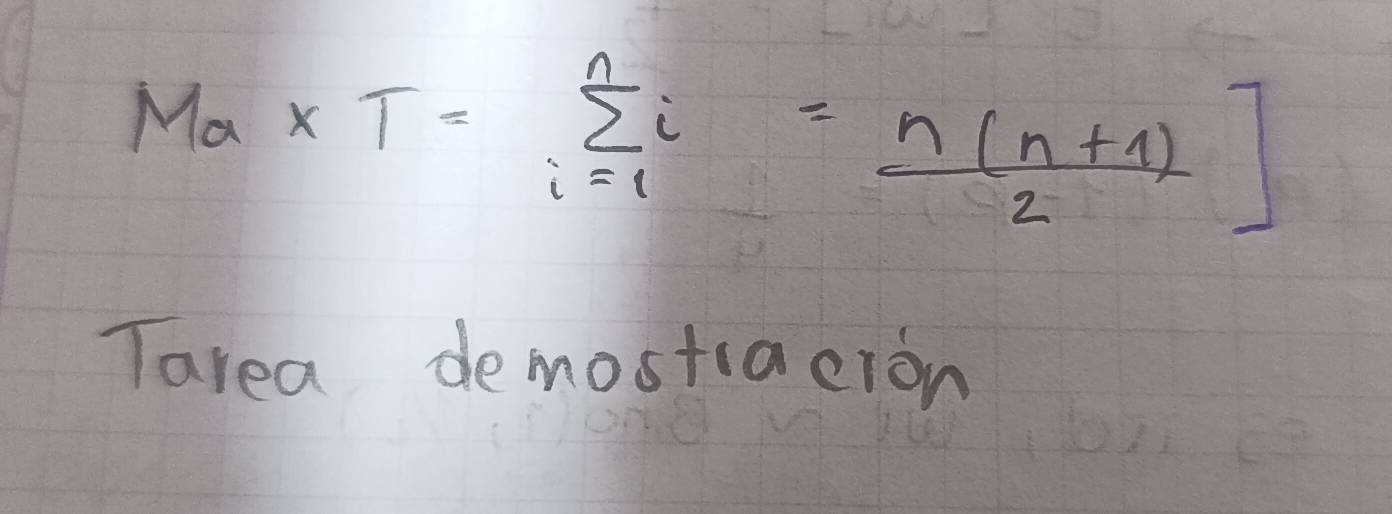 Max T = \sum_{i=1}^{n} i = \frac{n(n+1)}{2} ]
Tarea demostración